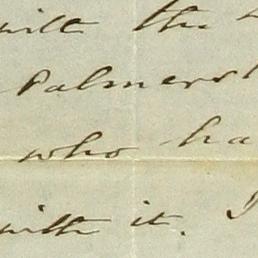 with the
Palmerst
who ha
with it. I